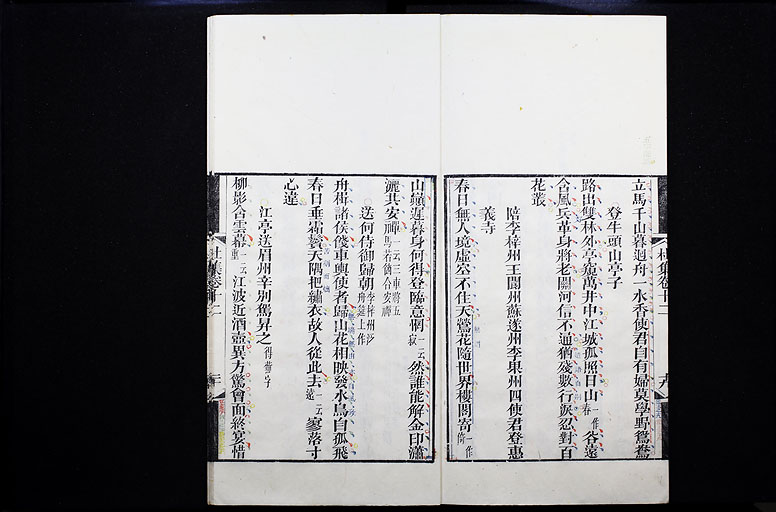 立馬千山暮迴舟一水香使君自有婦莫學野鴛鴦
登牛頭山亭子
路出雙林外亭窺萬井中江城孤照日山一作春谷遠
含風兵革身將老關河信不通猶殘數行淚忍對百
花叢
陪李梓州王閬州蘇遂州李果州四使君登惠
義寺
春日無人境虛空不住天鶯花隨世界樓閣寄一作倚
山巔遲暮身何得登臨意惘一云寂然誰能解金印瀟
灑共安禪一云三車將五馬若箇合安禪
送何侍御歸朝李梓州泛舟筵上作
舟楫諸侯餞車輿使者歸山花相映發水鳥自孤飛
春日垂霜鬢天隅把繡衣故人從此去一云遠寥落寸
心違
江亭送眉州辛別駕昇之得蕪字
柳影含雲幕江波近酒壺異方驚會面終宴惜
杜集卷十二